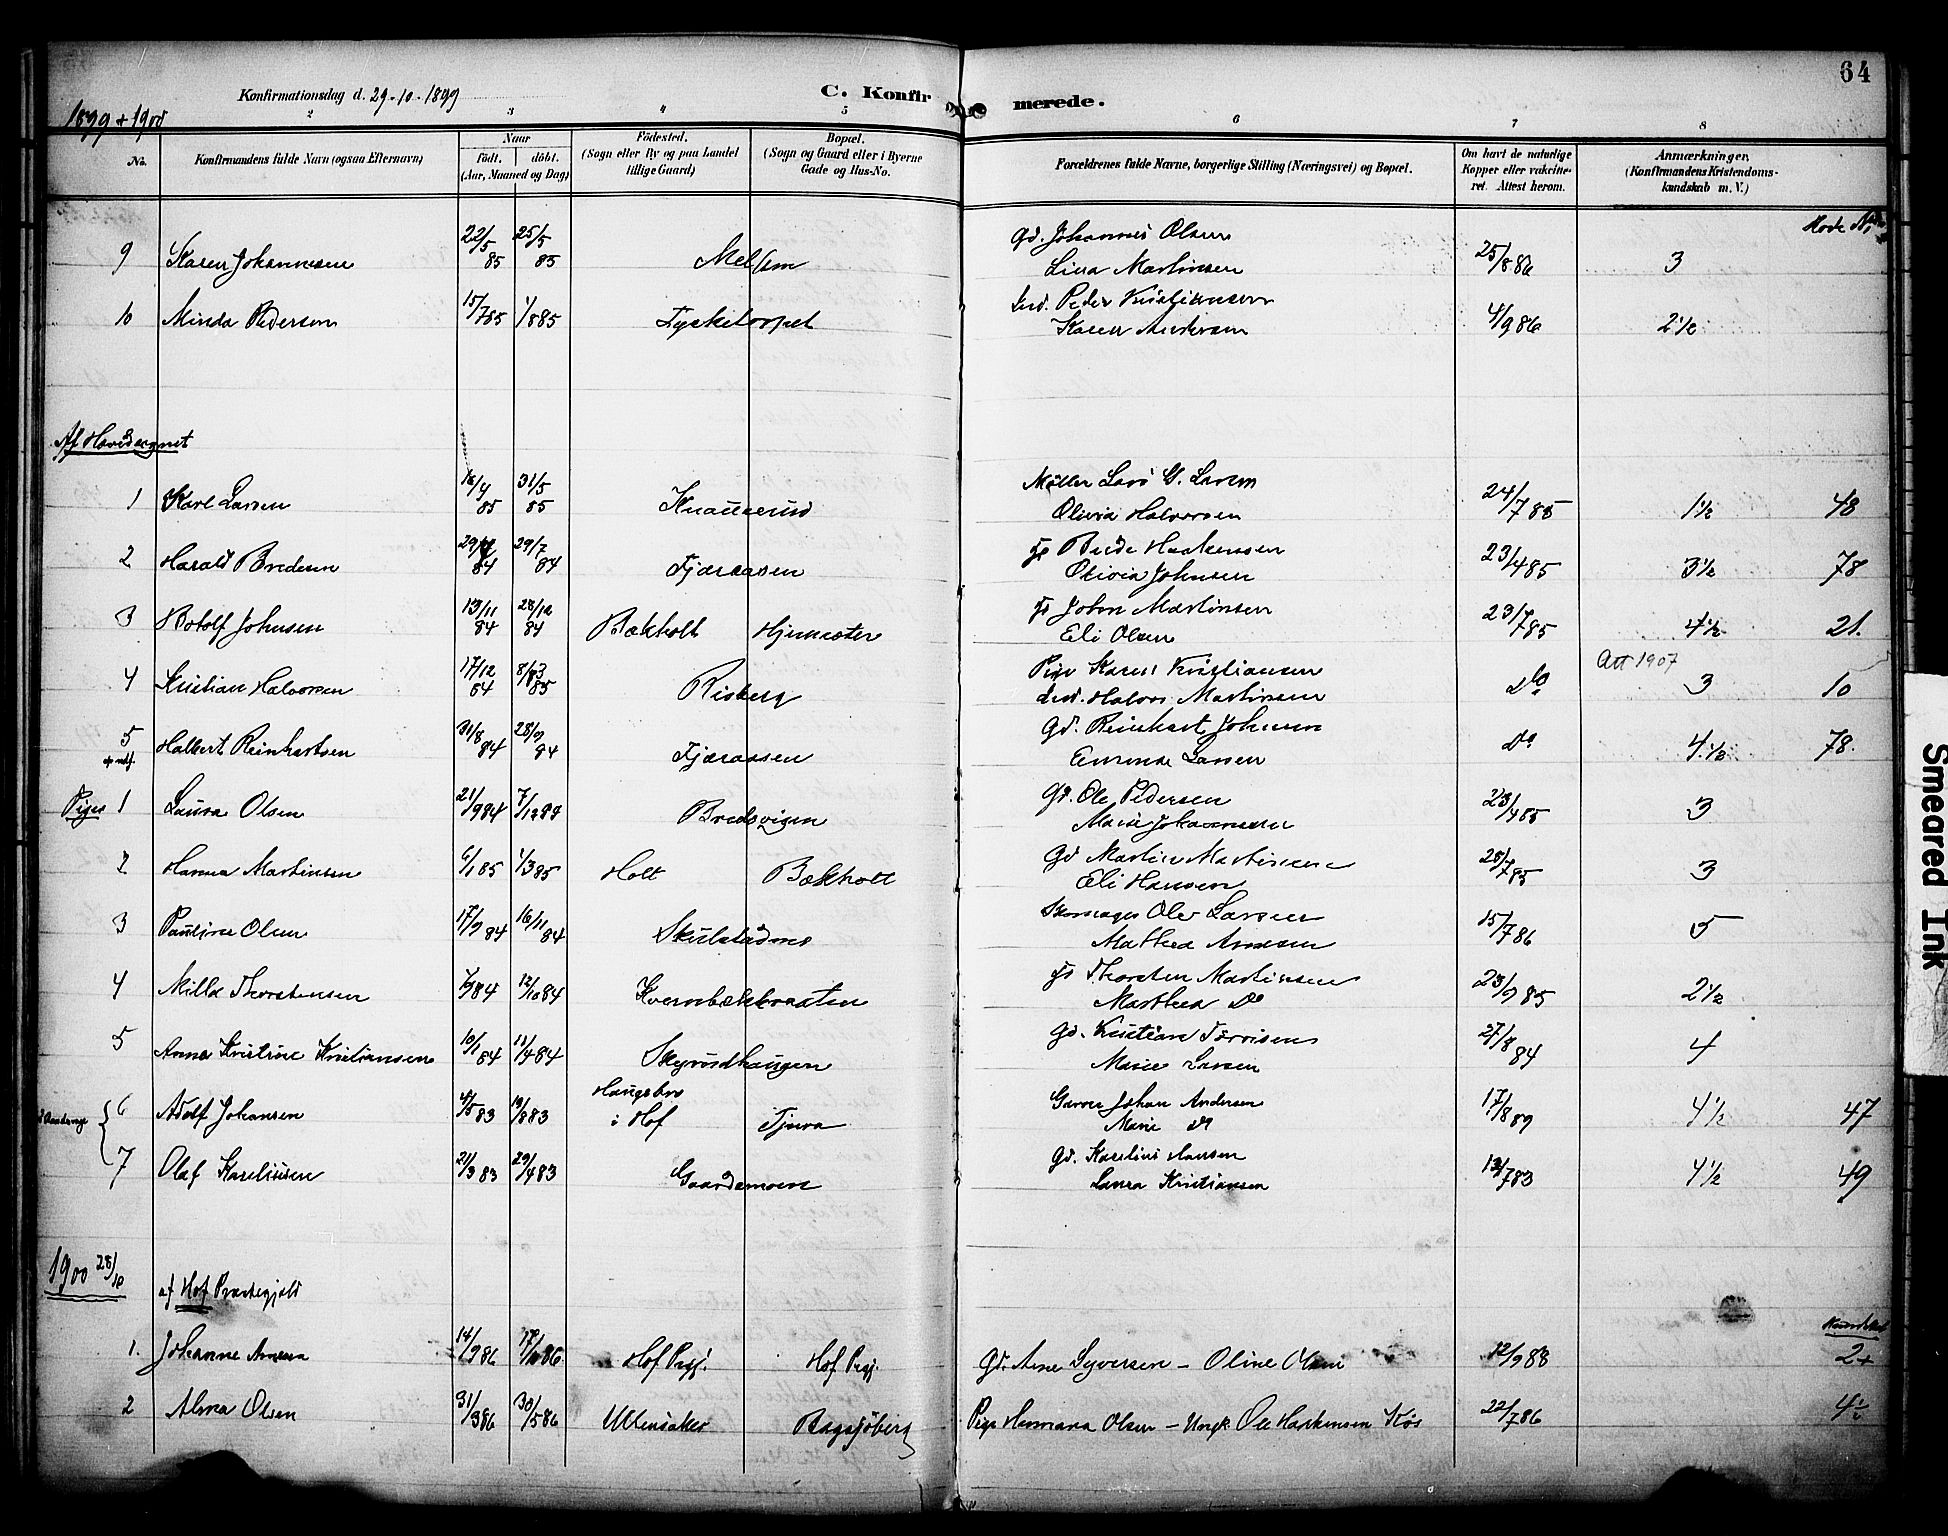 64
Konfirmationsdag d. 29-10-1899
C. Konfirmerede.
1899 + 1900
2 3 4 5 6 7 8
No.
Konfirmandens fulde Navn (ogsaa Efternavn)
Naar
födt. döbt.
(Aar, Maaned og Dag)
Födested.
(Sogn eller By og paa Landet
tillige Gaard)
Bopæl.
(Sogn og Gaard eller i Byerne
Gade og Hus-No.
Forældrenes fulde Navne, borgerlige Stilling (Næringsvei) og Bopæl.
Om havt de naturlige
Kopper eller vakcine-
ret. Attest herom.
Anmærkninger,
(Konfirmandens Kristendoms-
kundskab m. V.)
9 Karen Johannesen 22/5 85 25/5 85 Melsom Gd. Johannes Olsen
Lina Martinsen 25/8 86 3
10 Minda Pedersen 15/7 85 1/8 85 Tysketorpet Ind. Peder Kristiansen
Karen Andersen 4/9 86 2 1/2
Af Hovedsognet
1 Karl Larsen 16/4 85 31/5 85 Knauserud Møller Lars G. Larsen
Olivia Halvorsen 24/7 85 1 1/2 48
2 Harald Bredesen 84 29/7 84 Fjæraasen Fs Brede Haakensen
Olivia Johnsen 23/4 85 3 1/2 78
3 Botolf Johnsen 13/11 84 28/12 84 Bækholt Hjemsæter Fs John Martinsen
Eli Olsen 23/7 85 4 1/2 21.
4 Kristian Halvorsen 17/12 84 8/3 85 Risberg Pige Karen Kristiansen
Ind. Halvor Martinsen Do Att 1907 3 10
5 Halbert Reinhartsen 31/8 84 28/9 84 Fjæraasen Gd. Reinhart Johnsen
Larsen Do 4 1/2 78.
Piger 1 Laura Olsen 21/9 84 7/12 84 Bredsvigen Gd. Ole Pedersen
Marie Johannesen 23/4 85 3
2 Hanna Martinsen 6/1 85 1/3 85 Holt Bækholt Gd Martin Martinsen
Eli Hansen 28/7 85 3
3 Pauline Olsen 17/9 84 16/11 84 Skulstadmo Skomager Ole Larsen
Mathea Arnesen 15/7 86 5
4 Milla Thorstensen 84 12/10 84 Kvernbækbraaten Fs Thorsten Martinsen
Marthea Do 23/9 85 2 1/2
5 Anna Kristine Kristiansen 10/1 84 11/4 84 Skyrudhaugen Gd. Kristian Torvisen
Marie Larsen 27/8 84 4
6 Adolf Johansen 4/5 83 19/8 83 Haugsbro
i Hof Tjura Garver Johan Andersen
Marie Do 17/8 89 4 1/2 47
7 Olaf Kareliusen 21/3 83 29/4 83 Gaardsmoen Gd. Karelius Hansen
Laura Kristiansen 13/7 83 4 1/2 49
1900 28/10
af Hof Præstegjeld
1. Johanne Arnesen 14/9 86 17/10 86 Hof Prgj. Hof Prgj. Gd. Arne Syversen – Oline Olsen 12/9 88 2+
2 Alma Olsen 31/3 86 30/5 86 Ullensaker Bagsjøberg Pige Hermana Olsen – Ungk Ole Haakensen Kös 22/7 86 4 1/2
Smeared Ink